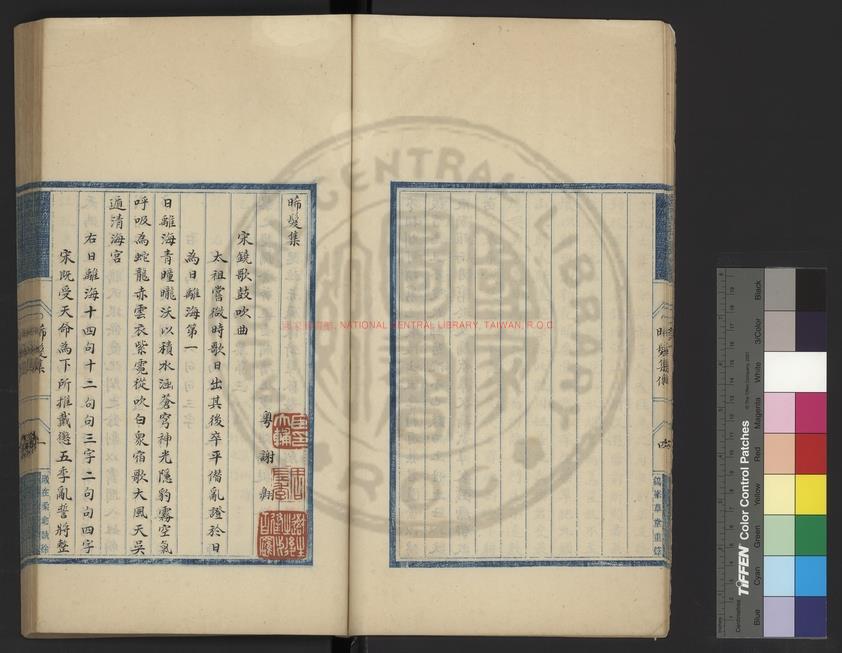 晞髮集
粵謝翱
宋鐃歌鼓吹曲
太祖嘗微時歌日出其後卒平僭亂證於日
為日離海第一
日離海青曈曨沃以積水涵蒼穹神光隱豹霧空氣
呼吸為蛇龍赤雲衣紫霓從吹白衆宿歌大風天吳
遁清海宮
右日離海十四句十二句句三字二句句四字
宋既受天命為下所推戴懲五季亂誓將整
晞髮集
國家圖書館, NATIONAL CENTRAL LIBRARY, TAIWAN, R.O.C
NATIONAL CENTRAL LIBRARY
R.O.C
TIFFEN Color Control Patches
© The Tiffen Company, 2007
Centimetres
Blue
Cyan
Green
Yellow
Red
Magenta
White
3/Color
Black